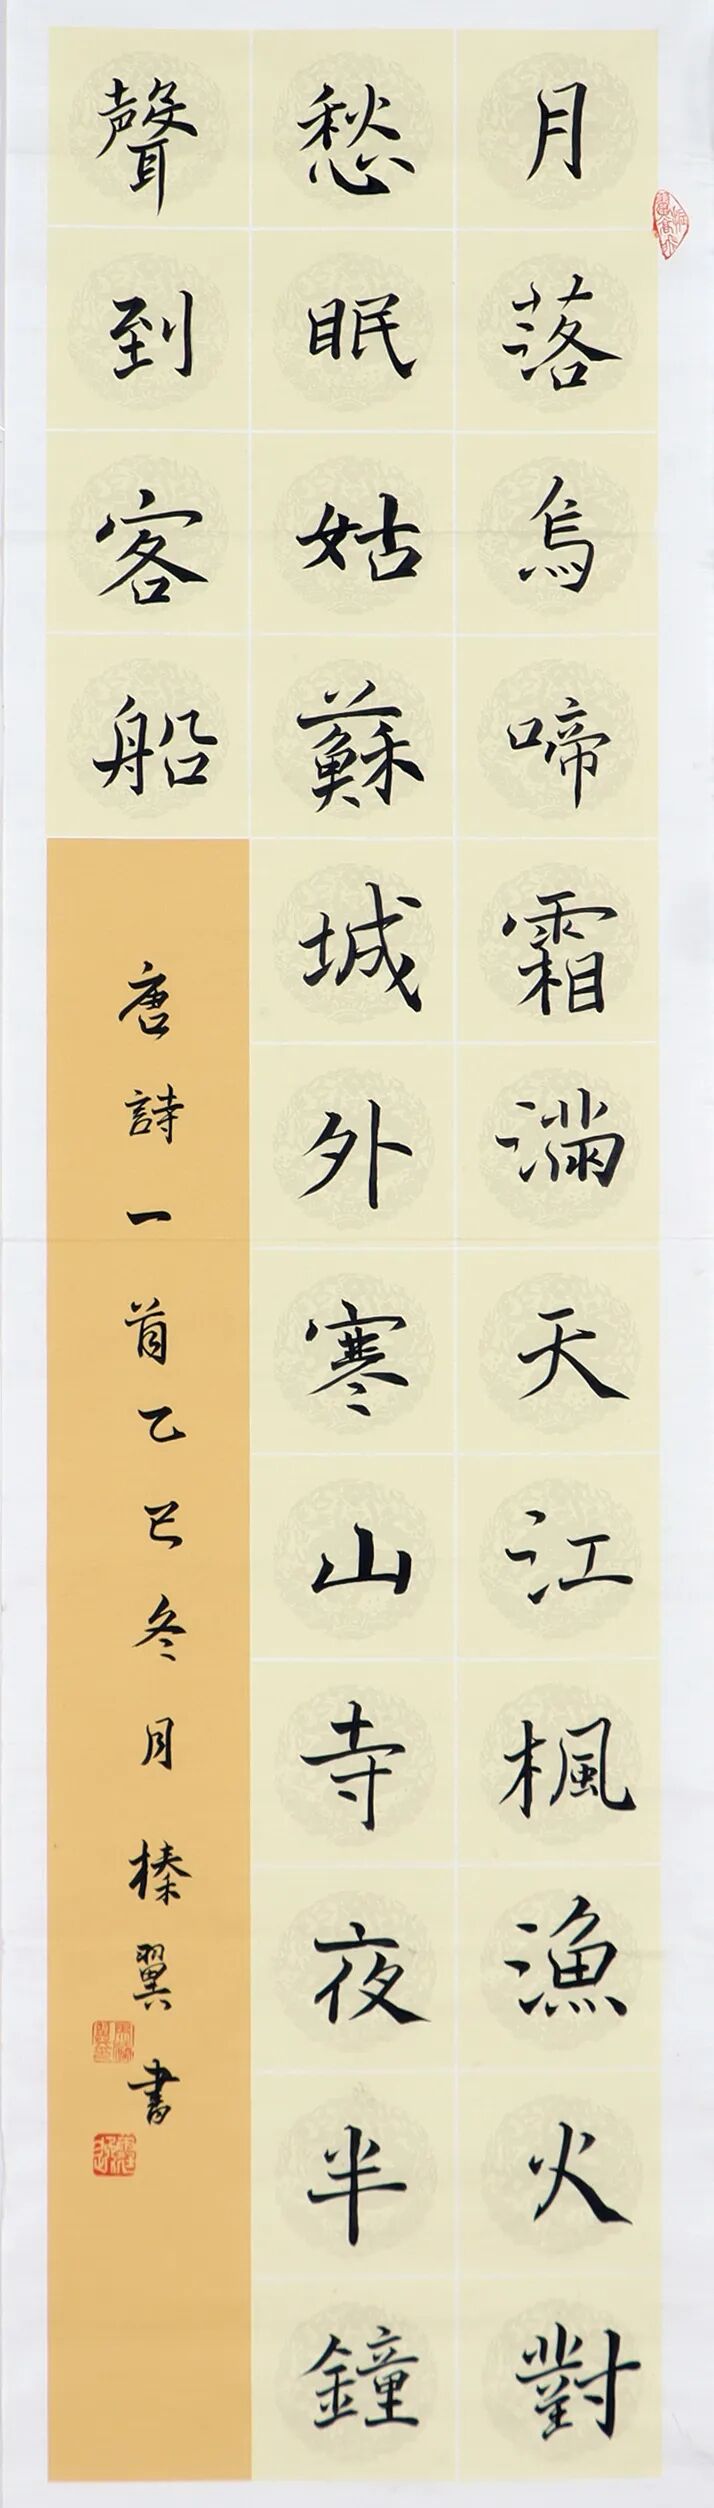 月落烏啼霜滿天江楓漁火對
愁眠姑蘇城外寒山寺夜半鐘
聲到客船
唐詩一首乙巳冬月榛翼書